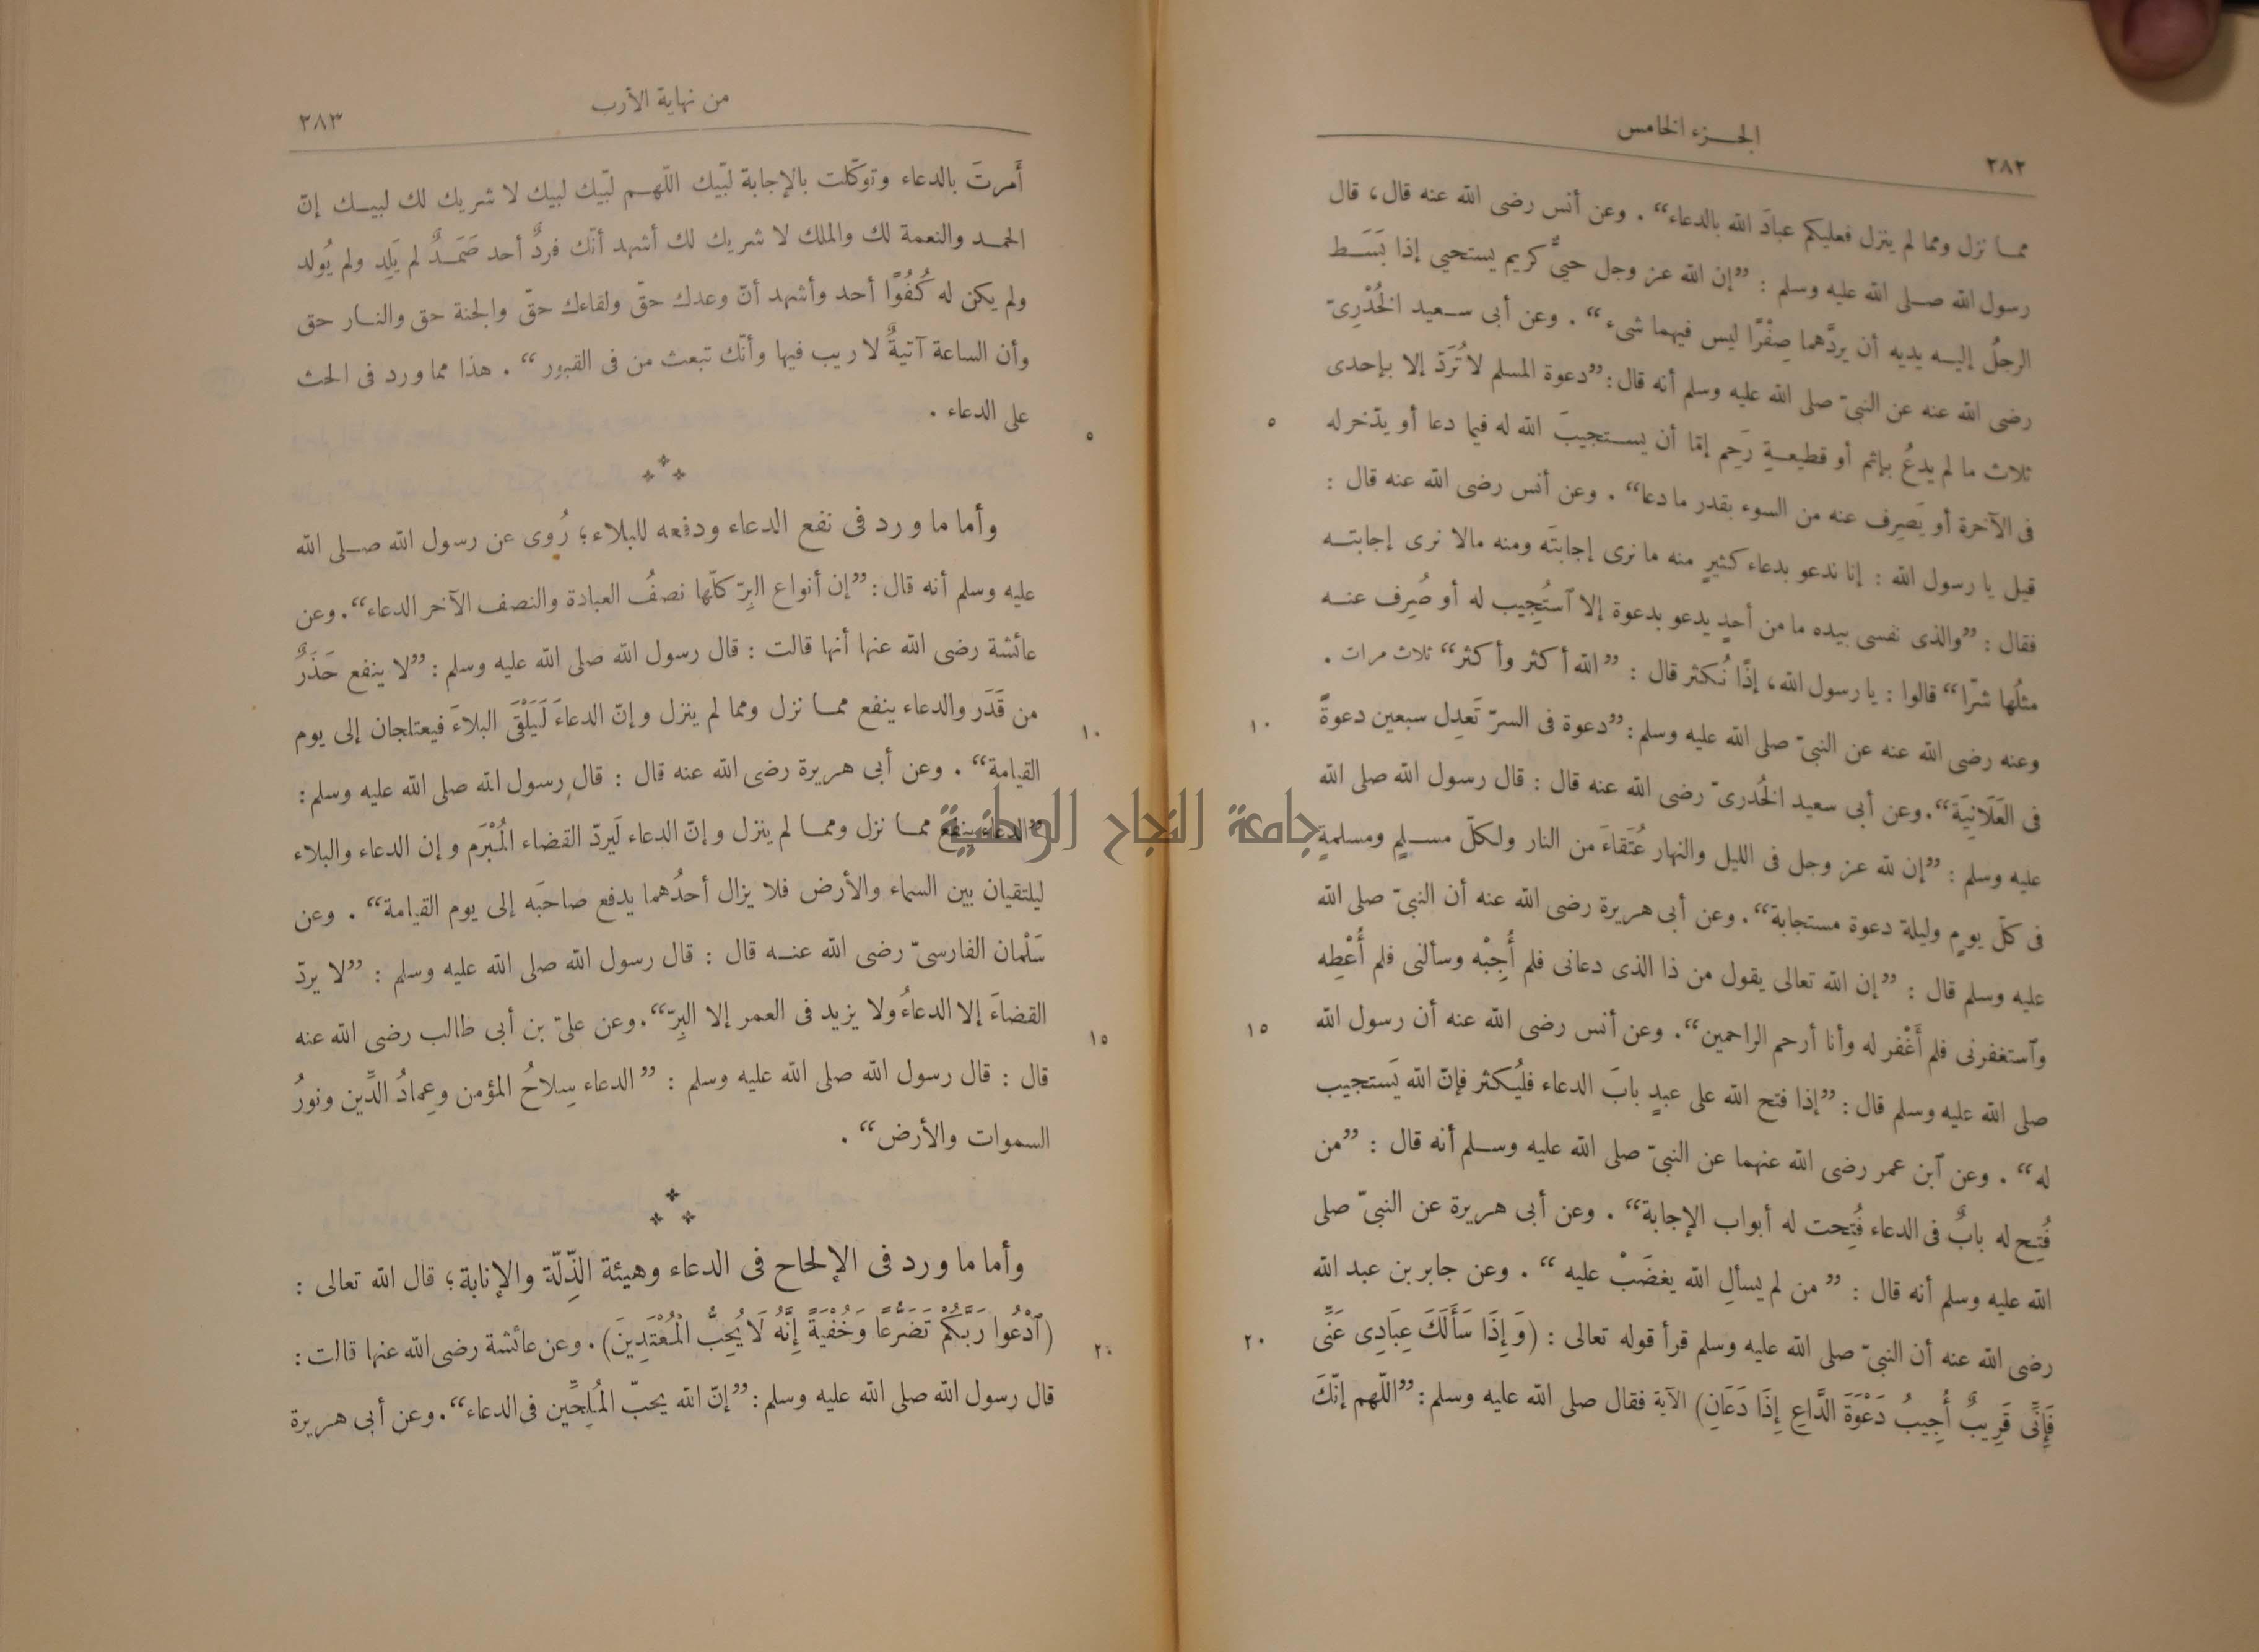 ٢٨٢
الجزء الخامس
مما نزل ومما لم ينزل فعليكم عبادَ الله بالدعاء“ . وعن أنس رضى الله عنه قال، قال
رسول الله صلى الله عليه وسلم : ”إن الله عز وجل حيىٌّ كريم يستحيى إذا بَسَط
الرجلُ إليه يديه أن يردَّهما صِفْرًا ليس فيهما شىء“ . وعن أبى سعيد الخُدْرِىّ
رضى الله عنه عن النبىّ صلى الله عليه وسلم أنه قال : ”دعوة المسلم لا تُرَدّ إلا بإحدى
ثلاث ما لم يدعُ بإثم أو قطيعةِ رَحِم إمّا أن يستجيبَ الله له فيما دعا أو يدّخر له
٥
فى الآخرة أو يَصرِف عنه من السوء بقدر ما دعا“ . وعن أنس رضى الله عنه قال :
قيل يا رسول الله : إنا ندعو بدعاء كثيرٍ منه ما نرى إجابتَه ومنه مالا نرى إجابتـه
فقال : ”والذى نفسى بيده ما من أحدٍ يدعو بدعوة إلا ٱستُجِيب له أو صُرِف عنـه
مثلُها شرّا“ قالوا : يا رسول الله، إذًا نُكثر قال : ”الله أكثر وأكثر“ ثلاث مرات .
وعنه رضى الله عنه عن النبىّ صلى الله عليه وسلم : ”دعوة فى السرّ تَعدِل سبعين دعوةً
١٠
فى العَلَانِيَة“. وعن أبى سعيد الخُدرىّ رضى الله عنه قال : قال رسول الله صلى الله
عليه وسلم : ”إن لله عز وجل فى الليل والنهار عُتَقاءَ من النار ولكلّ مسـلمٍ ومسلمةٍ
فى كلّ يومٍ وليلة دعوة مستجابة“. وعن أبى هريرة رضى الله عنه أن النبىّ صلى الله
عليه وسلم قال : ”إن الله تعالى يقول من ذا الذى دعانى فلم أُجِبْه وسألنى فلم أُعْطِه
وٱستغفرنى فلم أَغْفر له وأنا أرحم الراحمين“. وعن أنس رضى الله عنه أن رسول الله
١٥
صلى الله عليه وسلم قال : ”إذا فتح الله على عبدٍ بابَ الدعاء فليُكثر فإنّ الله يَستجيب
له“ . وعن ٱبن عمر رضى الله عنهما عن النبىّ صلى الله عليه وسـلم أنه قال : ”من
فُتِح له بابٌ فى الدعاء فُتِحت له أبواب الإجابة“ . وعن أبى هريرة عن النبىّ صلى
الله عليه وسلم أنه قال : ”من لم يسألِ الله يغضَبْ عليه“ . وعن جابر بن عبد الله
رضى الله عنه أن النبىّ صلى الله عليه وسلم قرأ قوله تعالى : (وَإِذَا سَأَلَكَ عِبَادِى عَنِّى
٢٠
فَإِنِّى قَرِيبٌ أُجِيبُ دَعْوَةَ الدَّاعِ إِذَا دَعَانِ) الآية فقال صلى الله عليه وسلم : ”اللّهم إنّكَ
جامعة النجاح الوطنية
من نهاية الأرب
٢٨٣
أَمرتَ بالدعاء وتوكّلت بالإجابة لبّيك اللّهـم لبّيك لبيك لا شريك لك لبيـك إنّ
الحمـد والنعمة لك والملك لا شريك لك أشهد أنّك فردٌ أحد صَمَـدٌ لم يَلِد ولم يُولد
ولم يكن له كُفُوًا أحد وأشهد أنّ وعدك حقّ ولقاءك حقّ والجنة حق والنـار حق
وأن الساعة آتيةٌ لا ريب فيها وأنّك تبعث من فى القبور“ . هذا مما ورد فى الحث
على الدعاء .
٥
وأما ما ورد فى نفع الدعاء ودفعه للبلاء؛ رُوى عن رسول الله صـلى الله
عليه وسلم أنه قال : ”إن أنواع البِرّ كلّها نصفُ العبادة والنصف الآخر الدعاء“. وعن
عائشة رضى الله عنها أنها قالت : قال رسول الله صلى الله عليه وسلم : ”لا ينفع حَذَرٌ
من قَدَر والدعاء ينفع ممـا نزل ومما لم ينزل وإنّ الدعاءَ لَيَلْقَى البلاءَ فيعتلجان إلى يوم
١٠
القيامة“ . وعن أبى هريرة رضى الله عنه قال : قال رسول الله صلى الله عليه وسلم :
”الدعاء ينفع ممـا نزل وممـا لم ينزل وإنّ الدعاء لَيردّ القضاء المُبْرَم وإن الدعاء والبلاء
ليلتقيان بين السماء والأرض فلا يزال أحدُهما يدفع صاحبَه إلى يوم القيامة“ . وعن
سَلْمان الفارسىّ رضى الله عنـه قال : قال رسول الله صلى الله عليه وسلم : ”لا يردّ
القضاءَ إلا الدعاءُ ولا يزيد فى العمر إلا البِرّ“. وعن علىّ بن أبى طالب رضى الله عنه
١٥
قال : قال رسول الله صلى الله عليه وسلم : ”الدعاء سِلاحُ المؤمن وعِمادُ الدِّين ونورُ
السموات والأرض“ .
وأما ما ورد فى الإلحاح فى الدعاء وهيئة الذِّلّة والإنابة؛ قال الله تعالى :
(ٱدْعُوا رَبَّكُمْ تَضَرُّعًا وَخُفْيَةً إِنَّهُ لَا يُحِبُّ الْمُعْتَدِينَ) . وعن عائشة رضى الله عنها قالت :
٢٠
قال رسول الله صلى الله عليه وسلم : ”إنّ الله يحبّ المُلِحِّين فى الدعاء“. وعن أبى هريرة